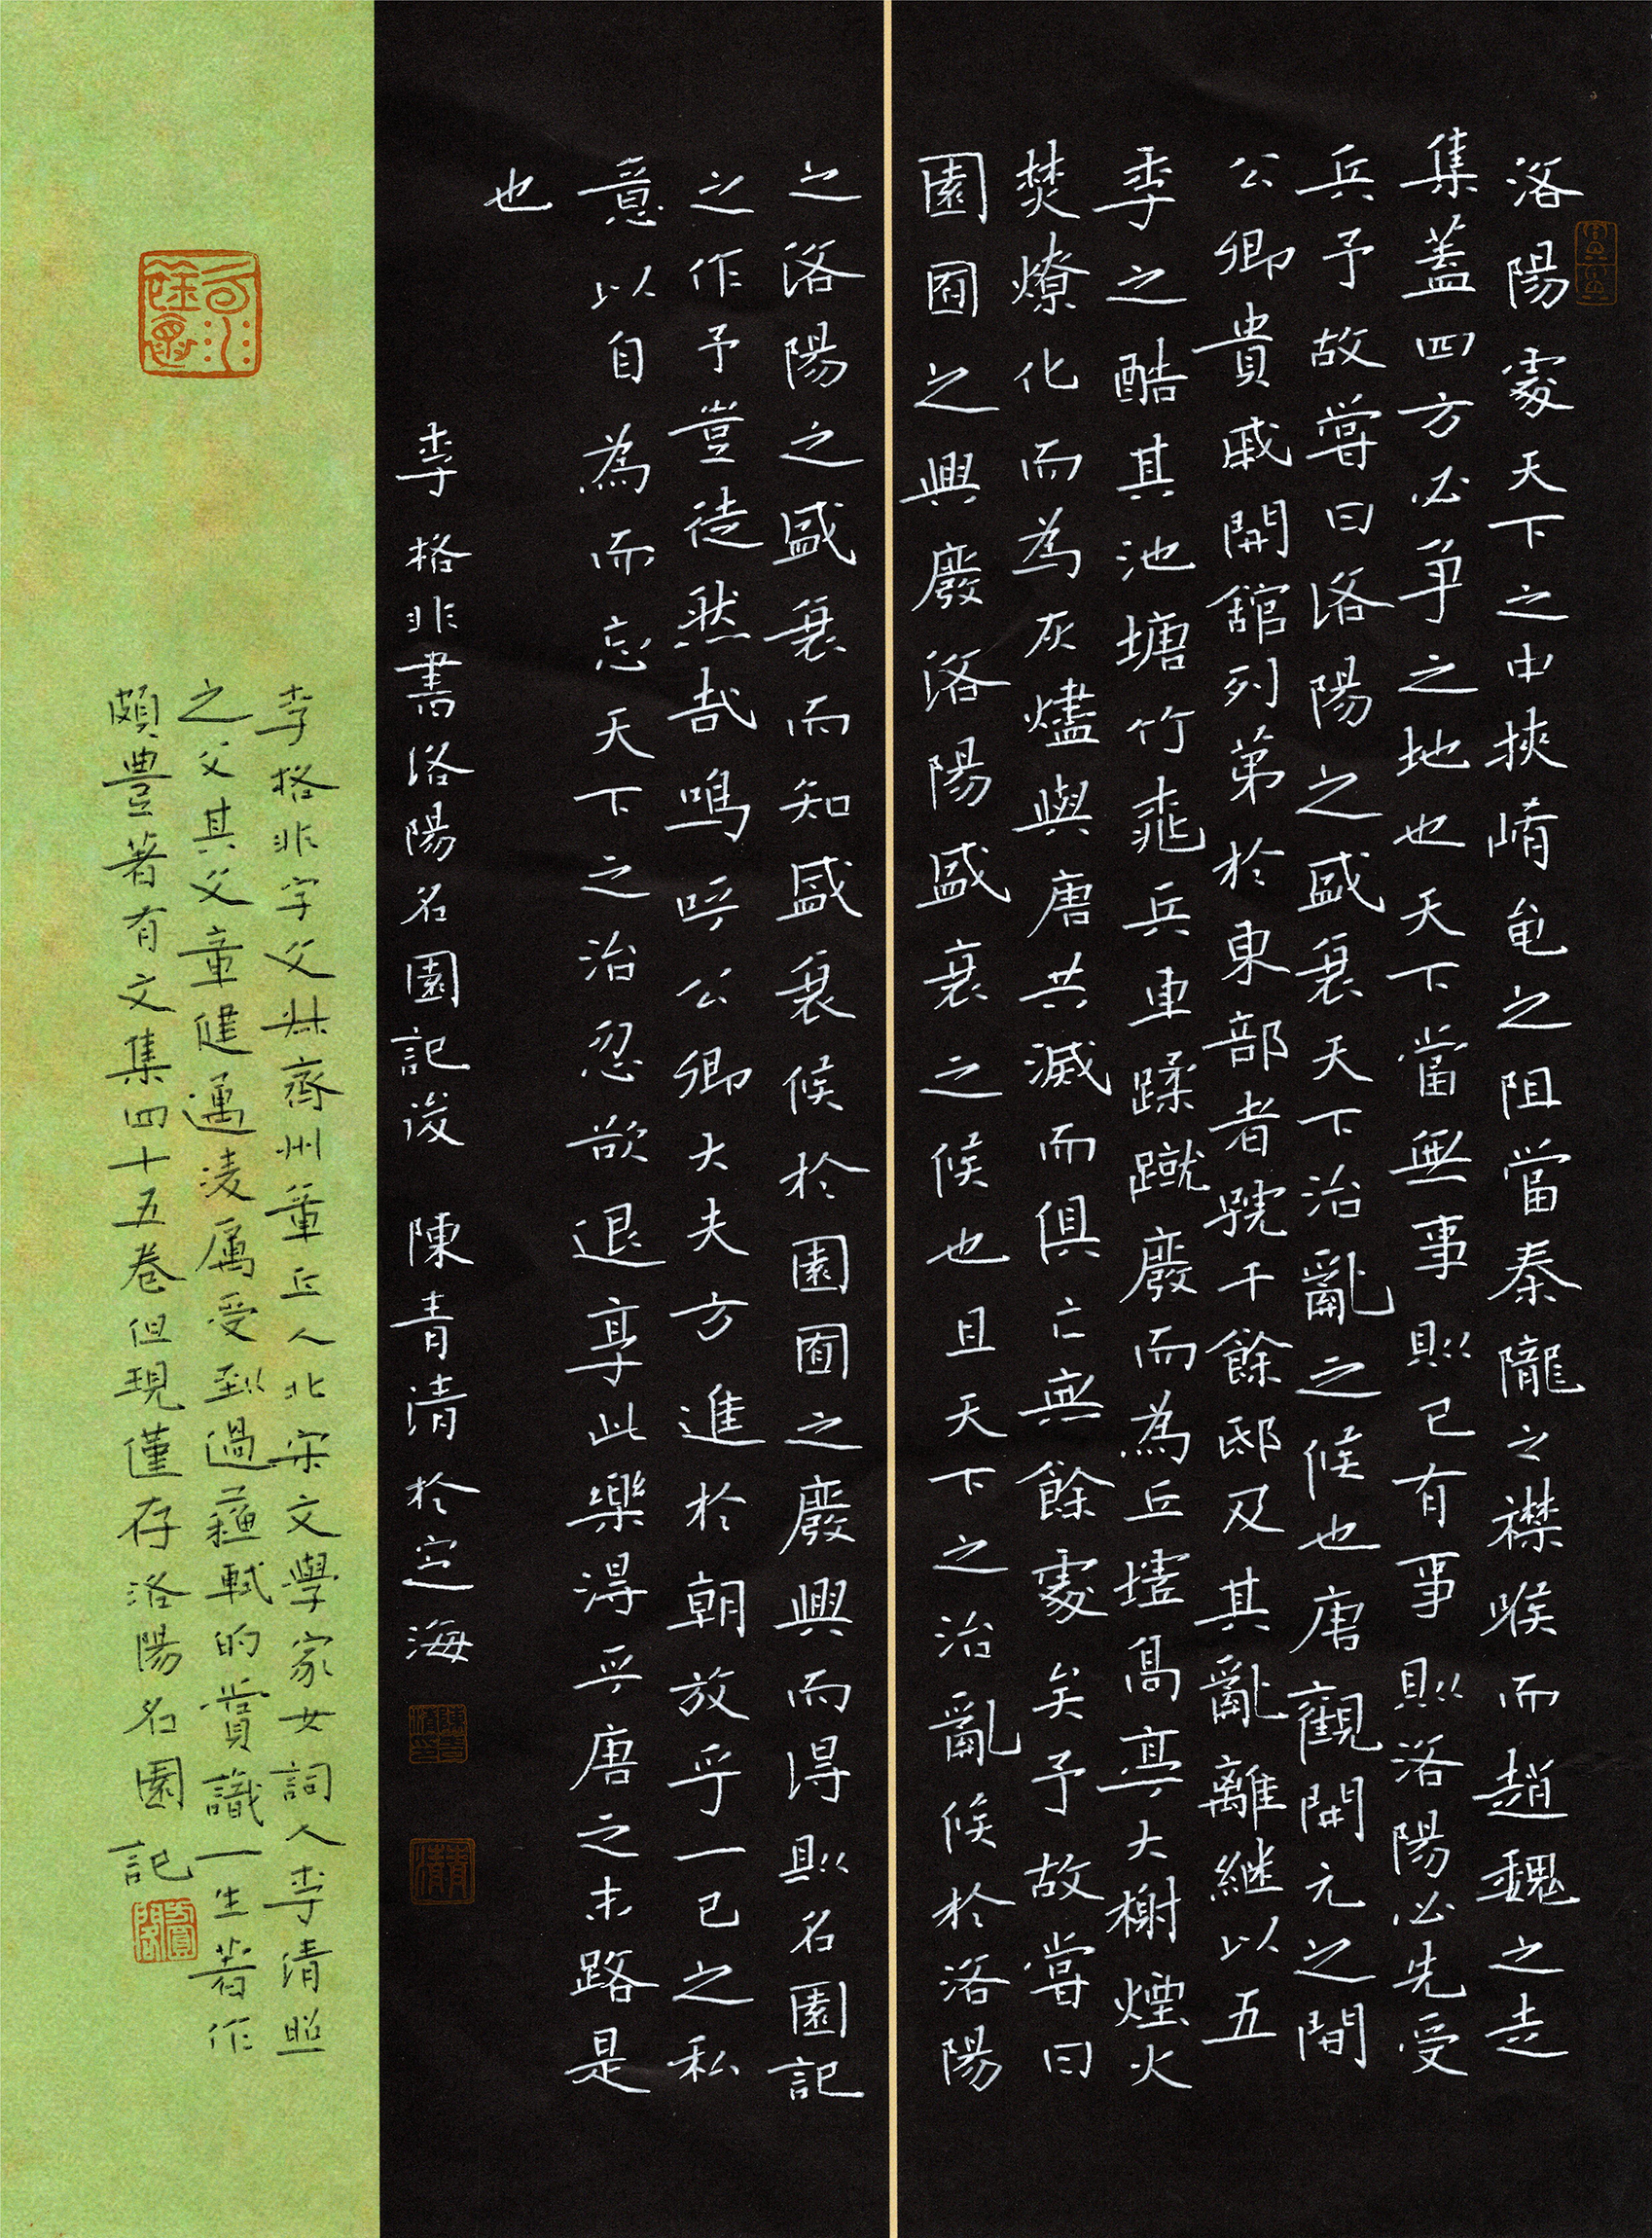 洛陽處天下之中挾崤黽之阻當秦隴之襟喉而趙魏之走
集蓋四方必爭之地也天下當無事則已有事則洛陽必先受
兵予故嘗曰洛陽之盛衰天下治亂之候也唐觀開元之間
公卿貴戚開館列第於東都者號千餘邸及其亂離繼以五
季之酷其池塘竹樹兵車蹂蹴廢而為丘墟高亭大榭煙火
焚燎化而為灰燼與唐共滅而俱亡無餘處矣予故嘗曰
園囿之興廢洛陽盛衰之候也且天下之治亂候於洛陽
之洛陽之盛衰而知盛衰候於園囿之廢興而得則名園記
之作予豈徒然哉鳴呼公卿大夫方進於朝放乎一已之私
意以自為而忘天下之治忽欲退享此樂得乎唐之末路是
也
李格非書洛陽名園記後 陳青清於定海
李格非字父叔齊州章丘人北宋文學家女詞人李清照
之父其父章健邁凌厲受到過蘇軾的賞識一生著作
頗豐著有文集四十五卷但現僅存洛陽名園記